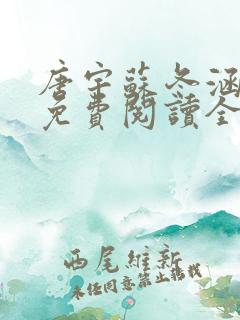 唐宇蘇冬涵
免費閱讀全
西尾維新
未經同意禁止轉載